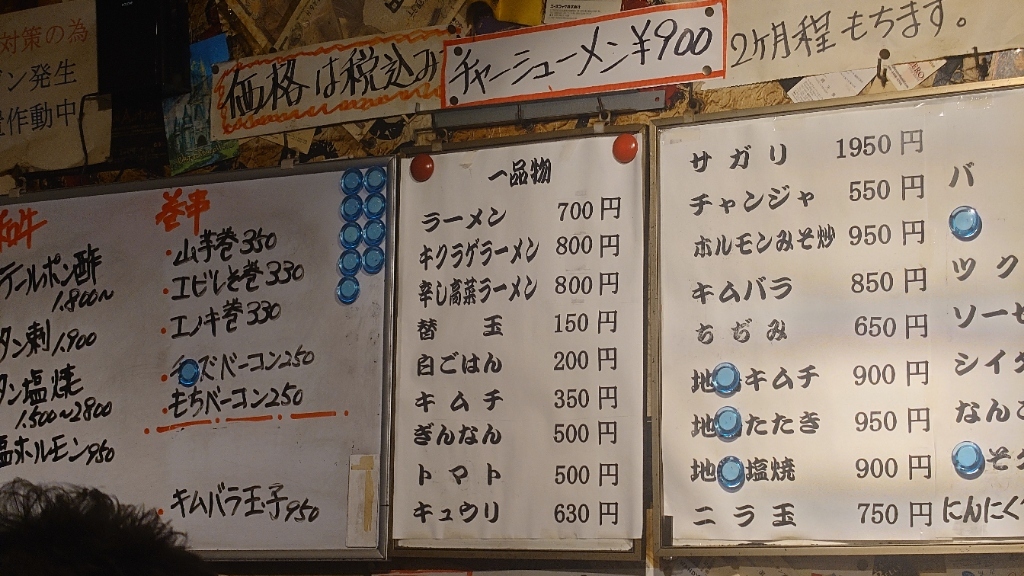 対策の為
発生
作動中
価格は税込み
チャーシューメン¥900
2ヶ月程もちます。
和牛
テールポン酢
1.800~
タン刺 1.900
タン塩焼
1.500~2800
塩ホルモン950
巻串
・山芋巻350
・エビしそ巻330
・エノキ巻330
・チ ズベーコン250
・もちベーコン250
・キムバラ玉子950
一品物
ラーメン 700円
キクラゲラーメン 800円
辛し高菜ラーメン 800円
替玉 150円
白ごはん 200円
キムチ 350円
ぎんなん 500円
トマト 500円
キュウリ 630円
サガリ 1950円
チャンジャ 550円
ホルモンみそ炒 950円
キムバラ 850円
ちぢみ 650円
地 キムチ 900円
地 たたき 950円
地 塩焼 900円
ニラ玉 750円
バ
ツク
ソーセ
シイタ
なんこ
そ
にんにく